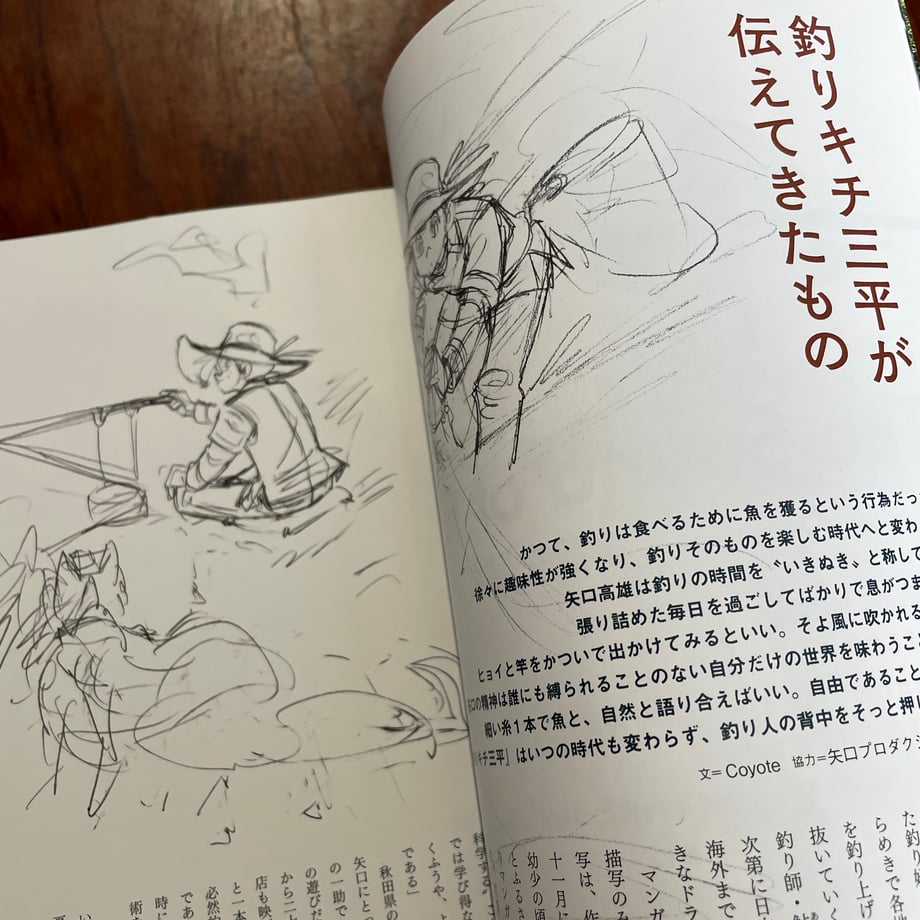 釣りキチ三平が
伝えてきたもの
かつて、釣りは食べるために魚を獲るという行為だっ
徐々に趣味性が強くなり、釣りそのものを楽しむ時代へと変わ
矢口高雄は釣りの時間を〝いきぬき〟と称して
張り詰めた毎日を過ごしてばかりで息がつま
ヒョイと竿をかついで出かけてみるといい。そよ風に吹かれる
の精神は誰にも縛られることのない自分だけの世界を味わうこ
細い糸1本で魚と、自然と語り合えばいい。自由であること
リキチ三平』はいつの時代も変わらず、釣り人の背中をそっと押し
文=Coyote 協力=矢口プロダクシ
た釣り
らめきで各
を釣り上げ
抜いていい
釣り師・鮎
次第に日
海外まで
きなドラ
マンガ
描写のみ
写は、作
十一月に
幼少の頃
とふるさ
りマンガ
科学する
では学び得な
くふうや、よ
である」
秋田県の
矢口にとっ
の一助で
の遊びだ
から二上
店も映
と一本
必然的
であ
時に
術
い